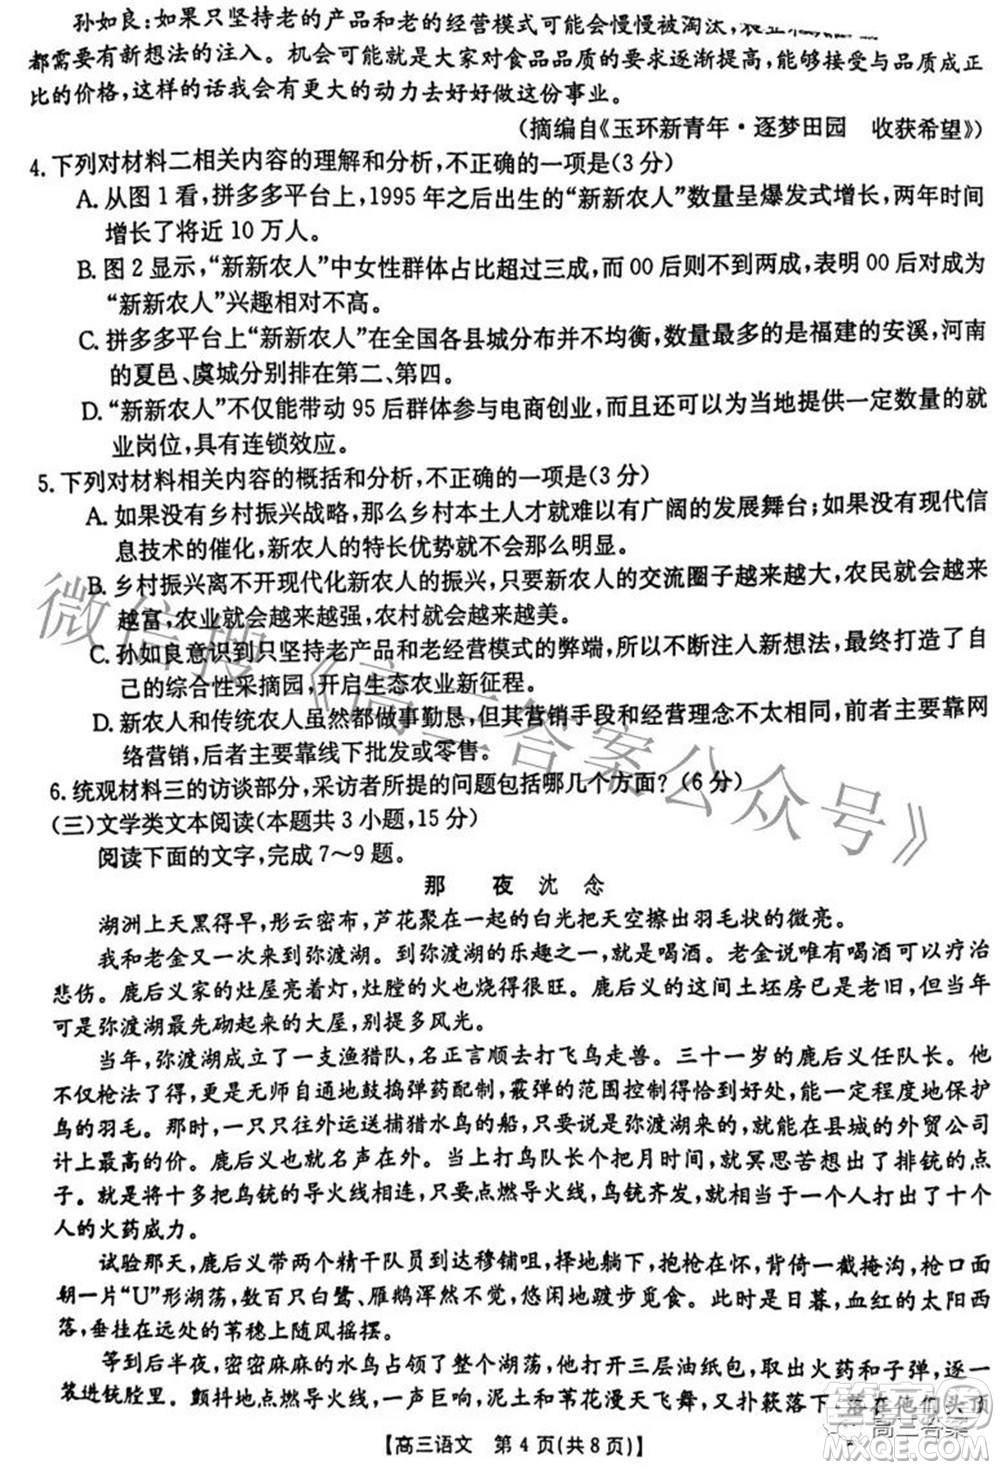 孙如良:如果只坚持老的产品和老的经营模式可能会慢慢被淘汰,农业
都需要有新想法的注入。机会可能就是大家对食品品质的要求逐渐提高,能够接受与品质成正
比的价格,这样的话我会有更大的动力去好好做这份事业。
(摘编自《玉环新青年·逐梦田园 收获希望》)
4.下列对材料二相关内容的理解和分析,不正确的一项是(3分)
A.从图1看,拼多多平台上,1995年之后出生的“新新农人”数量呈爆发式增长,两年时间
增长了将近10万人。
B.图2显示,“新新农人”中女性群体占比超过三成,而00后则不到两成,表明00后对成为
“新新农人”兴趣相对不高。
C.拼多多平台上“新新农人”在全国各县城分布并不均衡,数量最多的是福建的安溪,河南
的夏邑、虞城分别排在第二、第四。
D.“新新农人”不仅能带动95后群体参与电商创业,而且还可以为当地提供一定数量的就
业岗位,具有连锁效应。
5.下列对材料相关内容的概括和分析,不正确的一项是(3分)
A.如果没有乡村振兴战略,那么乡村本土人才就难以有广阔的发展舞台;如果没有现代信
息技术的催化,新农人的特长优势就不会那么明显。
B.乡村振兴离不开现代化新农人的振兴,只要新农人的交流圈子越来越大,农民就会越来
越富,农业就会越来越强,农村就会越来越美。
C.孙如良意识到只坚持老产品和老经营模式的弊端,所以果断注入新想法,最终建立起自
己的综合性采摘园,开启生态农业新征程。
D.新农人和传统农人虽然都做事勤恳,但其营销手段和经营理念不太相同,前者主要靠网
络营销,后者主要靠线下批发或零售。
6.统观材料三的访谈部分,采访者所提的问题包括哪几个方面?(6分)
(三)文学类文本阅读(本题共3小题,15分)
阅读下面的文字,完成7~9题。
那 夜 沈 念
湖洲上天黑得早,彤云密布,芦花聚在一起的白光把天空擦出羽毛状的微亮。
我和老金又一次来到弥渡湖。到弥渡湖的乐趣之一,就是喝酒。老金说唯有喝酒可以疗治
悲伤。鹿后义家的灶屋亮着灯,灶膛的火也烧得很旺。鹿后义的这间土坯房已是老旧,但当年
可是弥渡湖最先砌起来的大屋,别提多风光。
当年,弥渡湖成立了一支渔猎队,名正言顺去打飞鸟走兽。三十一岁的鹿后义任队长。他
枪法了得,更是无师自通地鼓捣弹药配制,霰弹的范围控制得恰到好处,能一定程度地保护
鸟的羽毛。那时,一只只往外运送捕猎水鸟的船,如果是弥渡湖来的,能在县城的外贸公司
计上最高的价。鹿后义也是声名在外。当上打鸟队长个把月时间,就冥思苦想出了排铳的点
子。就是将十多把鸟铳的导火线相连,只要点燃导火线,鸟铳齐发,相当于一个人打出了十个
人的火药威力。
试验那天,鹿后义带两个精干队员到达穆铺咀,择地躺下,抱枪在怀,背倚一截掩沟,枪口面
朝一片“U”形湖荡,数百只白鹭、雁鹅浑然不觉,悠闲地踱步觅食。此时是日暮,血红的太阳西
落,垂挂在远处的苇穗上随风摇摆。
等到后半夜,密密麻麻的水鸟占领了整个湖荡,他们打开三层油纸包,取出火药和子弹,逐一
装进铳膛里。颤抖地点燃导火线,一声巨响,泥土和苇花漫天飞舞,又扑簌簌落下,落在他们头顶
【高三语文 第4页(共8页)】
微信搜《高三答案公众号》
高三答案
答案圈
MXQE.COM